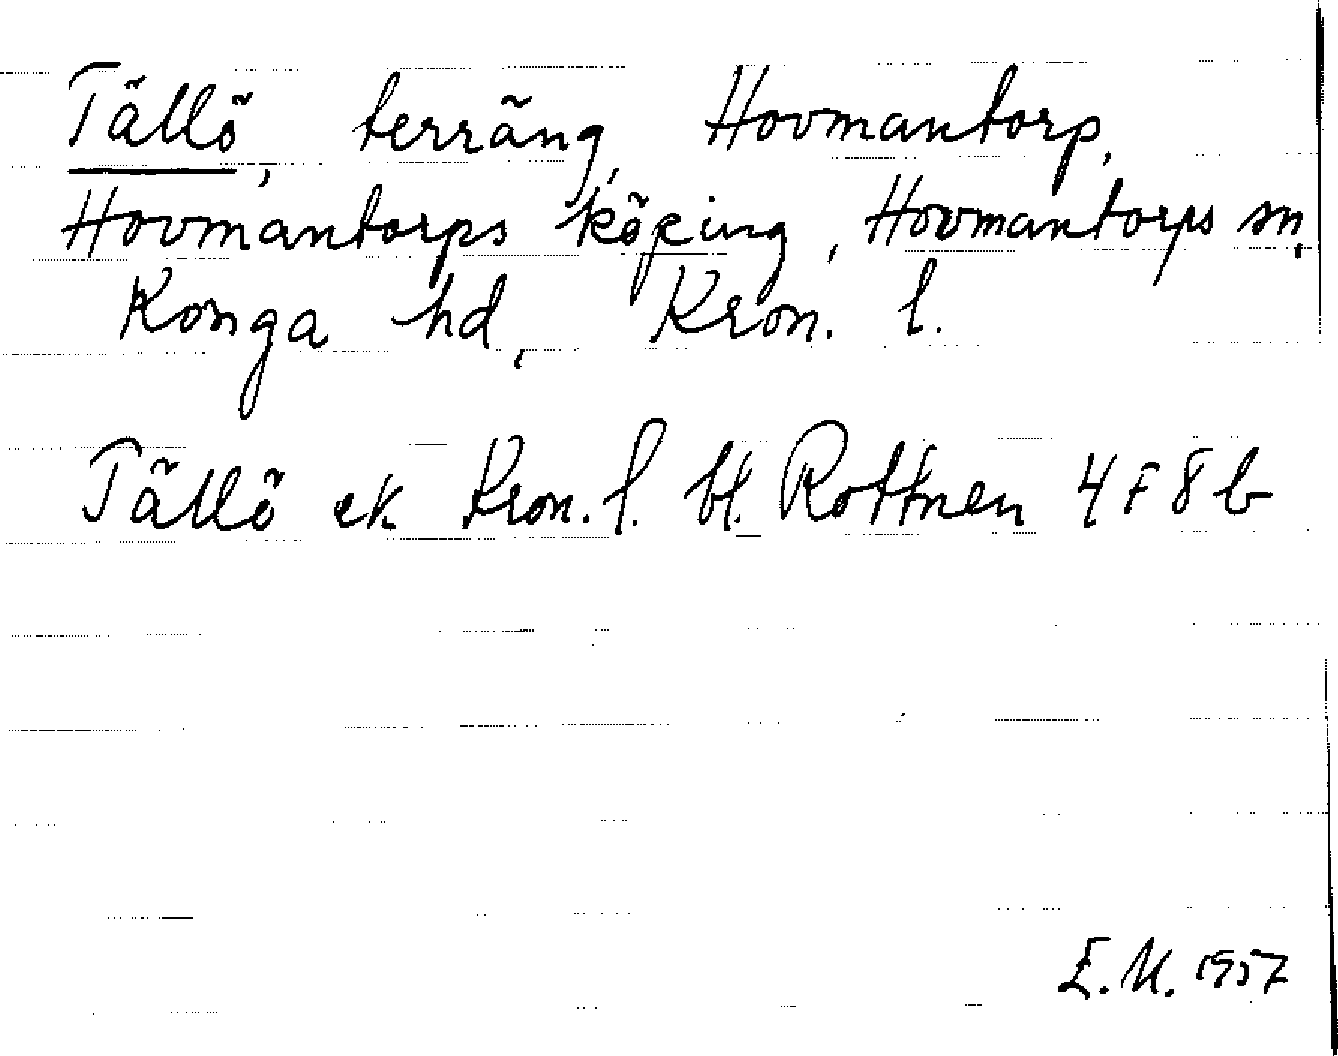 Tällö, terräng, Hovmantorp,
Hovmantorps köping, Hovmantorps sn,
Konga hd, Kron. l.
Tällö ek Kron. l. bl. Rottnen 4 F 8 b
E. U. 1957